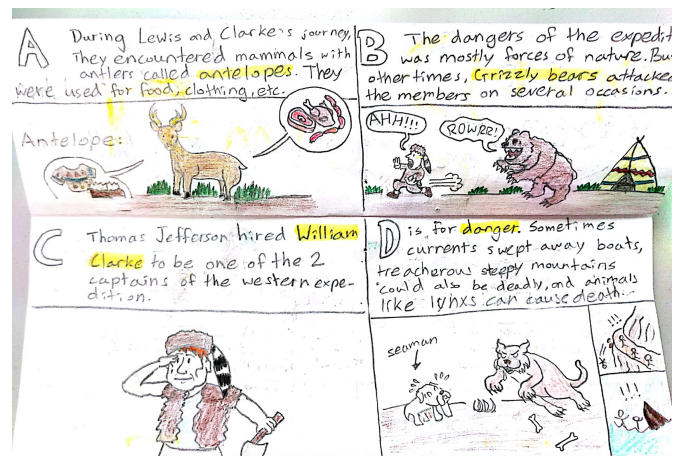 A
During Lewis and Clarke's journey,
They encountered mammals with
antlers called antelopes. They
were used for food, clothing, etc.
Antelope:
B
The dangers of the expedit
was mostly forces of nature. Bu
other times, Grizzly bears attacke
the members on several occasions.
AHH!!!
ROWRR!
C
Thomas Jefferson hired William
Clarke to be one of the 2
captains of the western expe-
dition.
D
is for danger. Sometimes
currents swept away boats,
treacherous steepy mountains
could also be deadly, and animals
like lynxs can cause death.
seaman
!!!
!!!